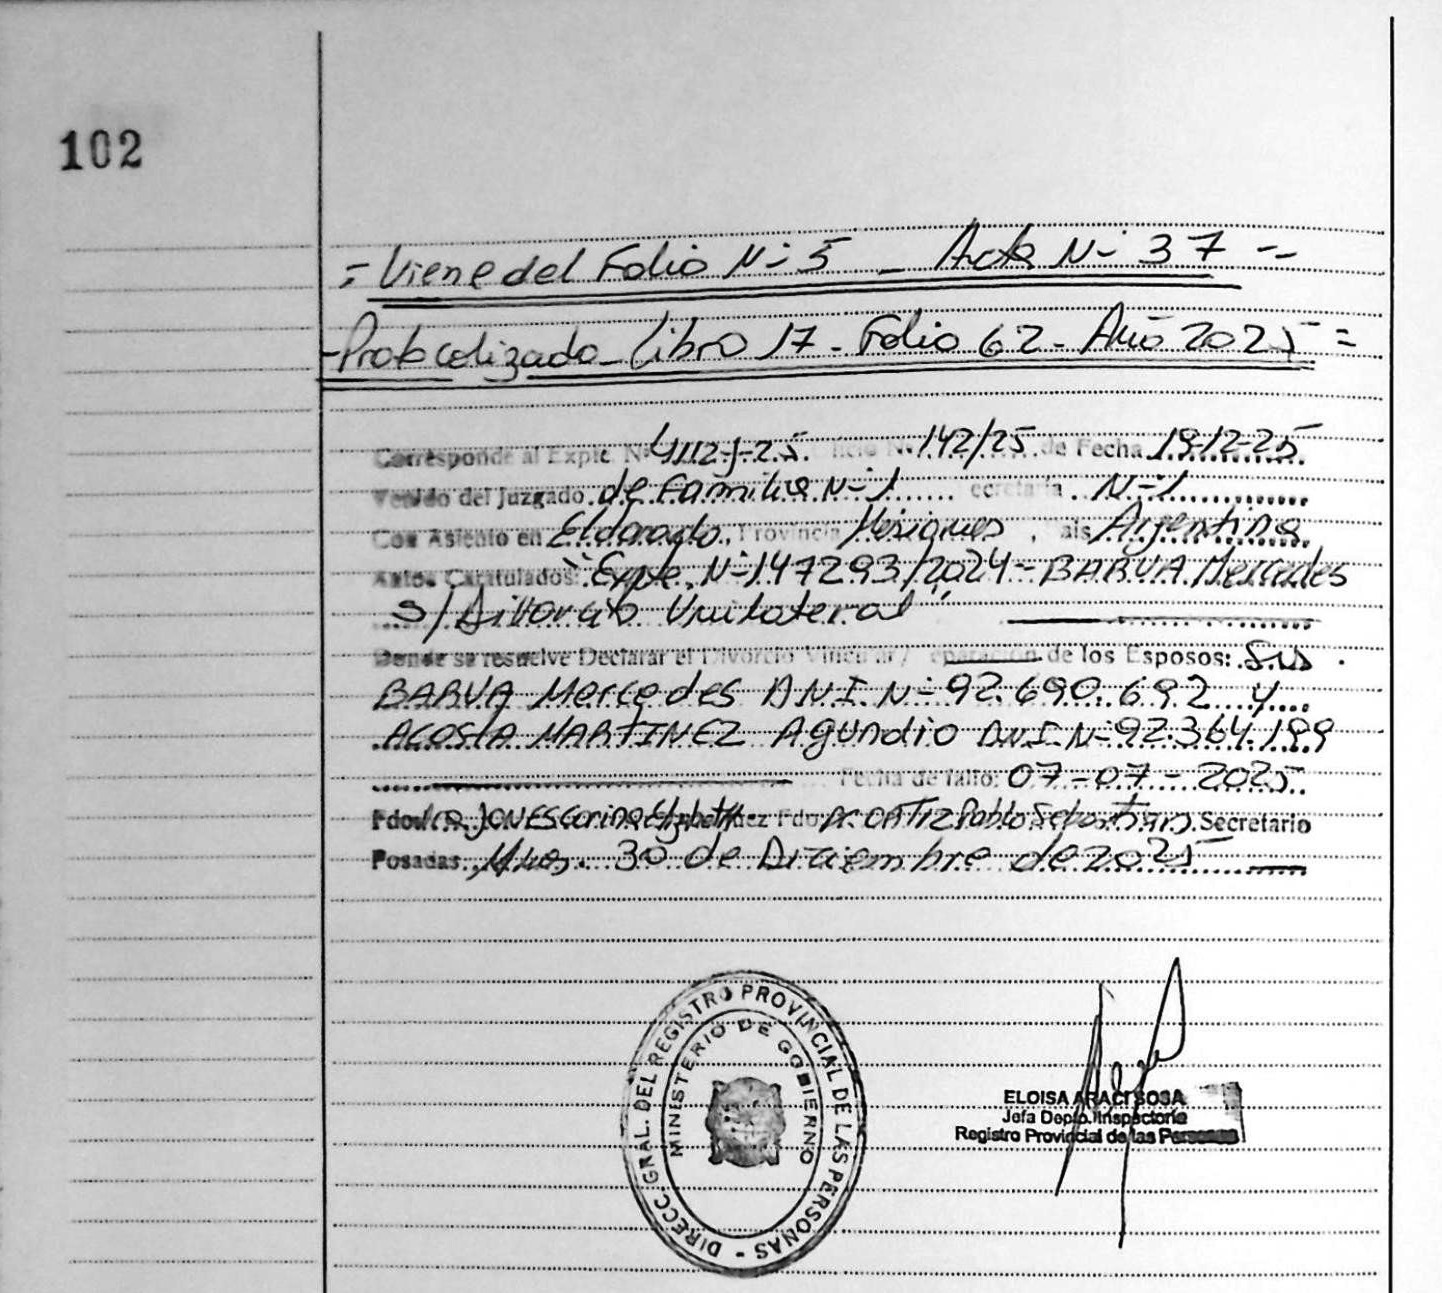 102
= Viene del Folio N- 5 _ Acta N- 37 --
-Protocolizado - Libro 17 - Folio 62 - Año 2025 =
Corresponde al Expte N 4112-J-25. icio N. 142/25 de Fecha 19-12-25
Venido del Juzgado de Familia N-1 ecretaria N-1
Con Asiento en Eldorado, Provincia Misiones, aís Argentina
Autos Caratulados: "Expte. N-147293/2024 - BARUA Mercedes
S/ Divorcio Unilateral"
Donde se resuelve Declarar el Divorcio Vincular / eparación de los Esposos: Sres
BARUA Mercedes D.N.I. N- 92.690.692 y
ACOSTA MARTINEZ Agundio D.N.I. N- 92.364.199
Fecha de fallo: 07-07-2025
Fdo. JONES Carina Elizabeth uez Fdo. Dr. ORTIZ Pablo Sebastian Secretario
Posadas, Mnes. 30 de Diciembre de 2025
DIRECC. GRAL. DEL REGISTRO PROVINCIAL DE LAS PERSONAS -
MINISTERIO DE GOBIERNO
ELOISA ARACI SOSA
Jefa Depto. Inspectoria
Registro Provincial de las Personas